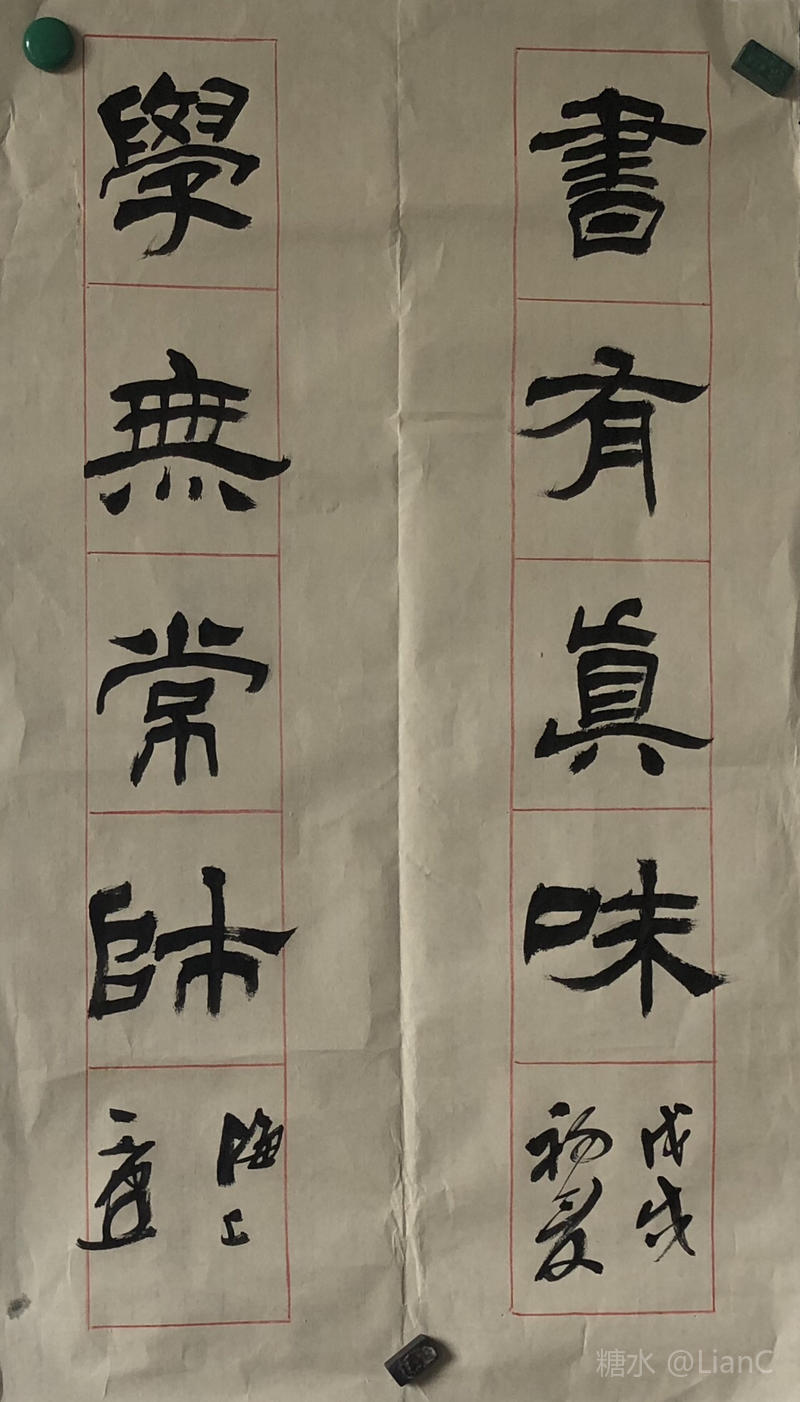 書有真味
戊戌
初夏
學無常師
海上
糖水 @LianC